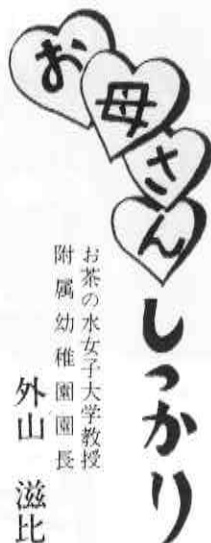 お母さんしっかり
お茶の水女子大学教授
附属幼稚園園長
外山 滋比